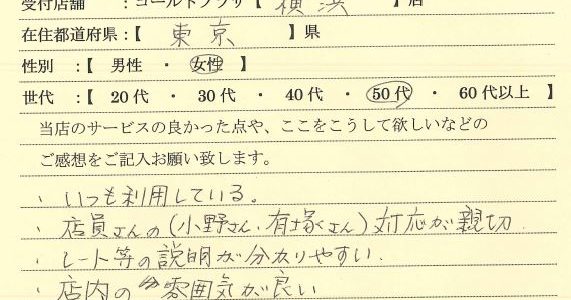 受付店舗 :ゴールドプラザ【 横浜 】店
在住都道府県:【 東京 】県
性別 :【 男性 ・ 女性 】
世代 :【 20代 ・ 30代 ・ 40代 ・ 50代 ・ 60代以上 】
当店のサービスの良かった点や、ここをこうして欲しいなどの
ご感想をご記入お願い致します。
・いつも利用している。
・店員さんの(小野さん、有塚さん)対応が親切
・レート等の説明が分かりやすい.
・店内の雰囲気が良い